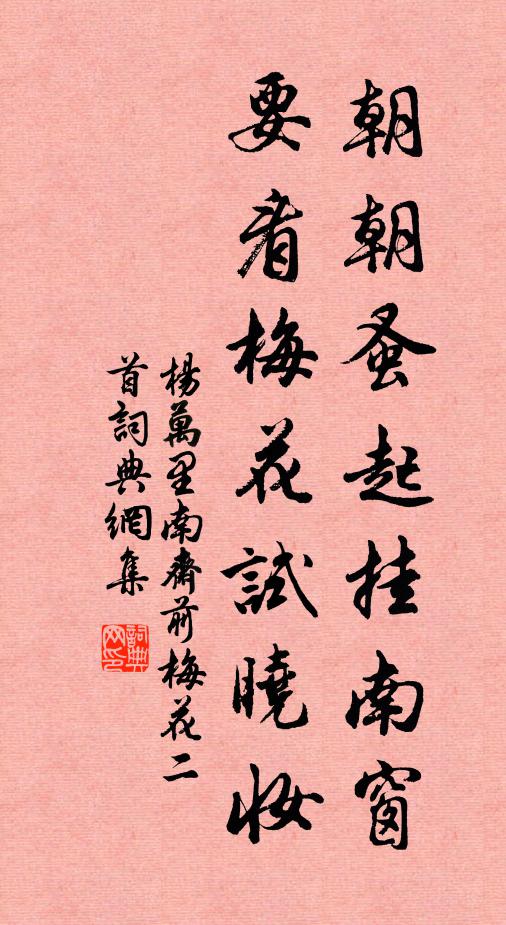 朝朝蚤起挂南窗
要看梅花試曉妝
楊萬里南齋前梅花二
首詞典網集
詞典
网印